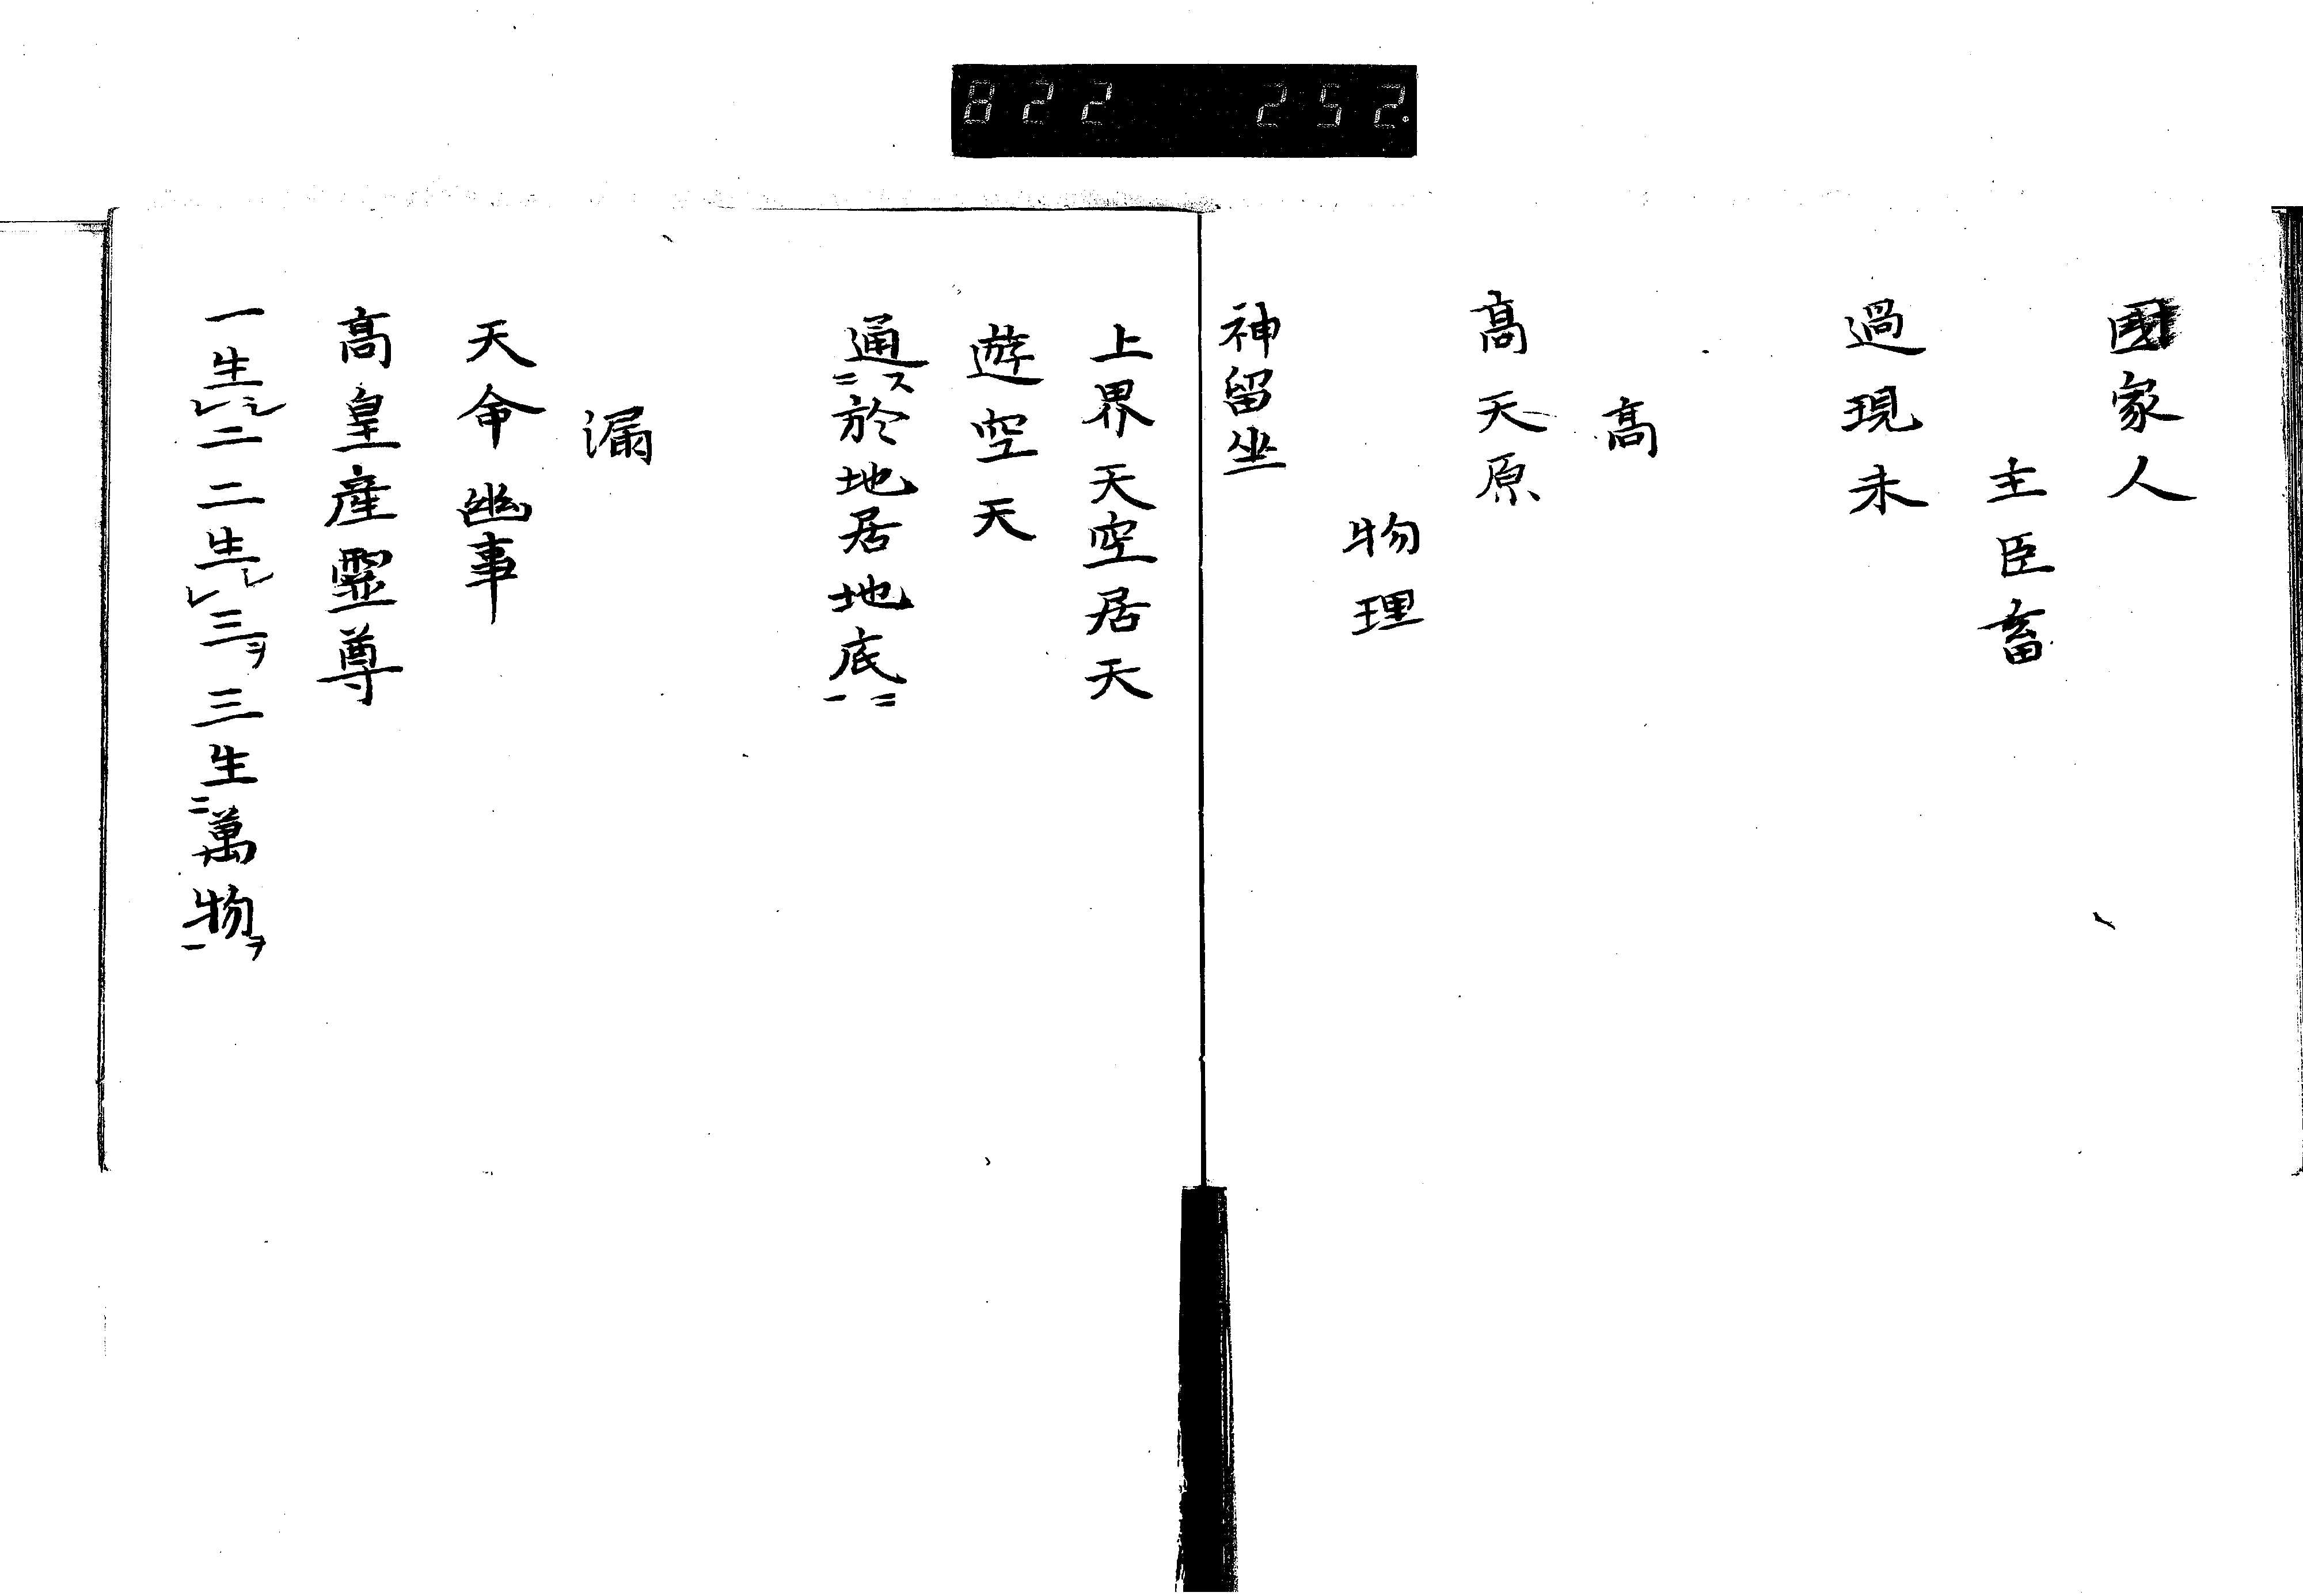 822 252.
國家人
主臣畜
過現未
高
高天原
物理
神留坐
上界天空居天
遊空天
通ス二於地居地底ニ一
漏
天命幽事
高皇産霊尊
一生レ二二生レ三ヲ三生二萬物ヲ一